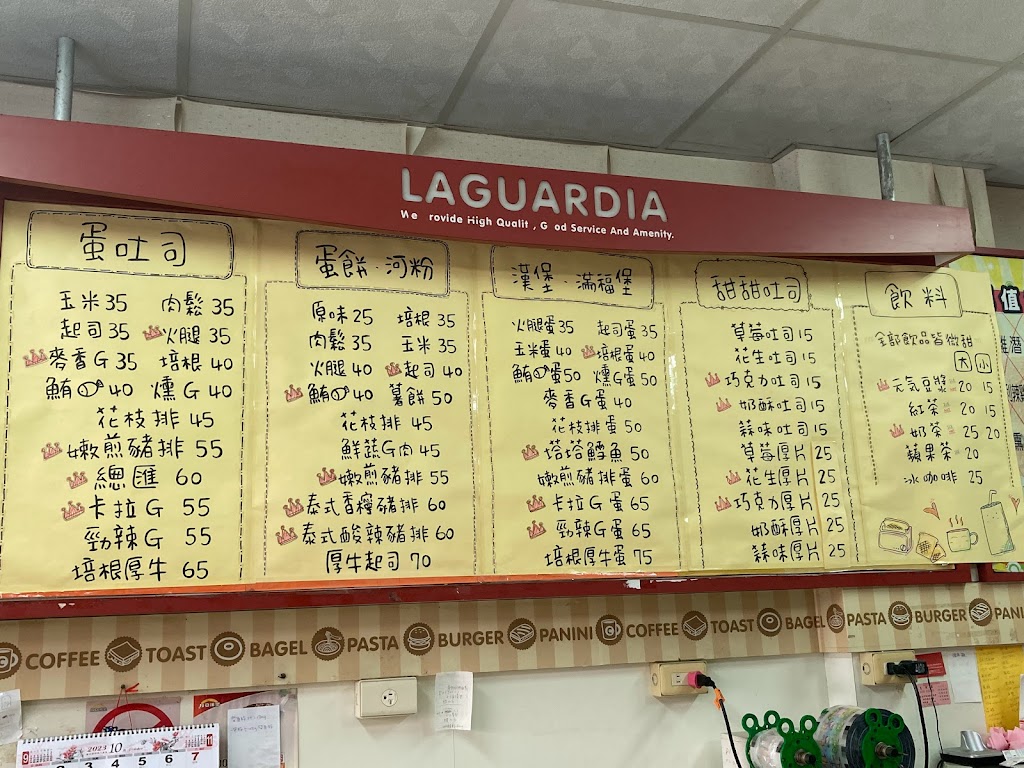 LAGUARDIA
We rovide High Qualit , G od Service And Amenity.
蛋吐司
玉米 35 肉鬆 35
起司 35 火腿 35
麥香G 35 培根 40
鮪 40 燻G 40
花枝排 45
嫩煎豬排 55
總匯 60
卡拉G 55
勁辣G 55
培根厚牛 65
蛋餅．河粉
原味 25 培根 35
肉鬆 35 玉米 35
火腿 40 起司 40
鮪 40 薯餅 50
花枝排 45
鮮蔬G肉 45
嫩煎豬排 55
泰式香檸豬排 60
泰式酸辣豬排 60
厚牛起司 70
漢堡．滿福堡
火腿蛋 35 起司蛋 35
玉米蛋 40 培根蛋 40
鮪蛋 50 燻G蛋 50
麥香G蛋 40
花枝排蛋 50
塔塔鱈魚 50
嫩煎豬排蛋 60
卡拉G蛋 65
勁辣G蛋 65
培根厚牛蛋 75
甜甜吐司
草莓吐司 15
花生吐司 15
巧克力吐司 15
奶酥吐司 15
蒜味吐司 15
草莓厚片 25
花生厚片 25
巧克力厚片 25
奶酥厚片 25
蒜味厚片 25
飲料
全部飲品皆微甜
大 小
元気豆漿 20 15
紅茶 20 15
奶茶 25 20
蘋果茶 20
冰咖啡 25
值
COFFEE TOAST BAGEL PASTA BURGER PANINI COFFEE TOAST BAGEL PASTA BURGER PANI
9 2023 10 11
2 3 4 5 6 7